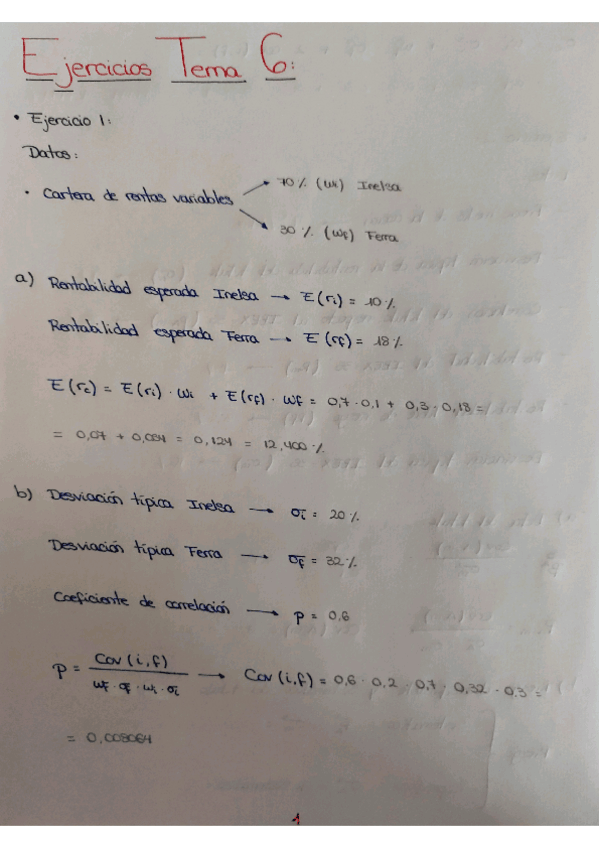 Ejercicios Tema 6:
• Ejercicio 1:
Datos:
• Cartera de rentas variables
70% (wi) Inelsa
30% (wf) Ferra
a) Rentabilidad esperada Inelsa → E(ri) = 10%
Rentabilidad esperada Ferra → E(rf) = 18%
E(rc) = E(ri) · wi + E(rf) · wf = 0,7 · 0,1 + 0,3 · 0,18 =
= 0,07 + 0,054 = 0,124 = 12,400%
b) Desviación típica Inelsa → σi = 20%
Desviación típica Ferra → σf = 32%
Coeficiente de correlación → p = 0,6
p = Cov(i,f) / wf · σf · wi · σi → Cov(i,f) = 0,6 · 0,2 · 0,7 · 0,32 · 0,3 =
= 0,008064
1